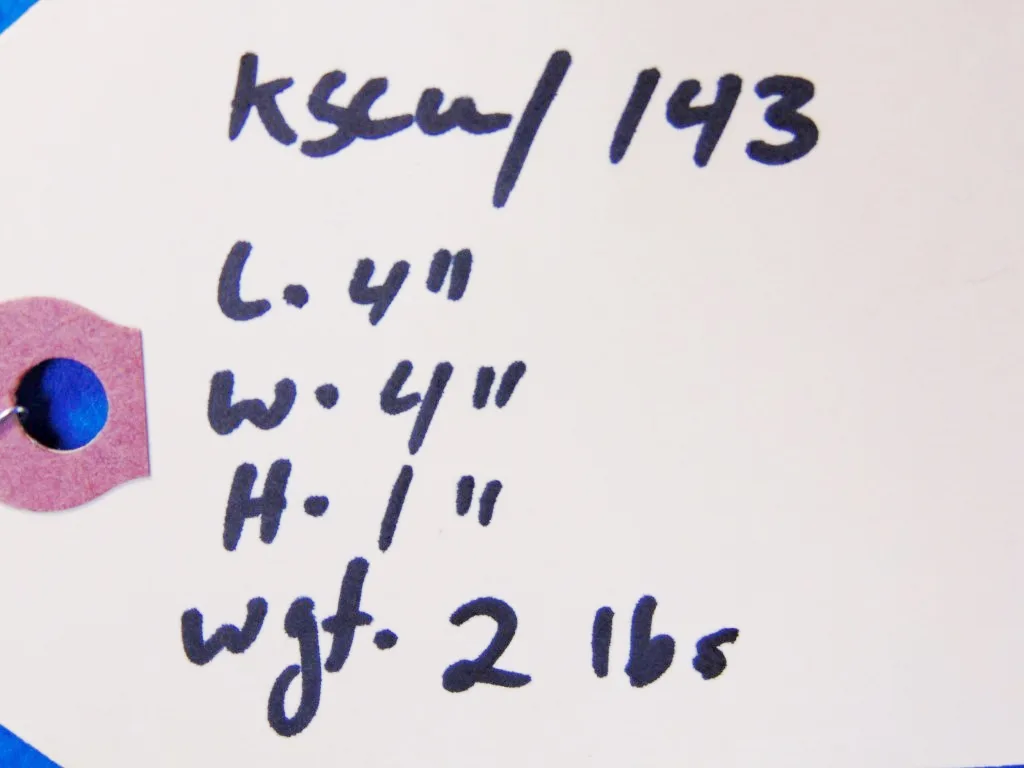 kscu/ 143
L. 4"
W. 4"
H. 1"
wgt. 2 lbs